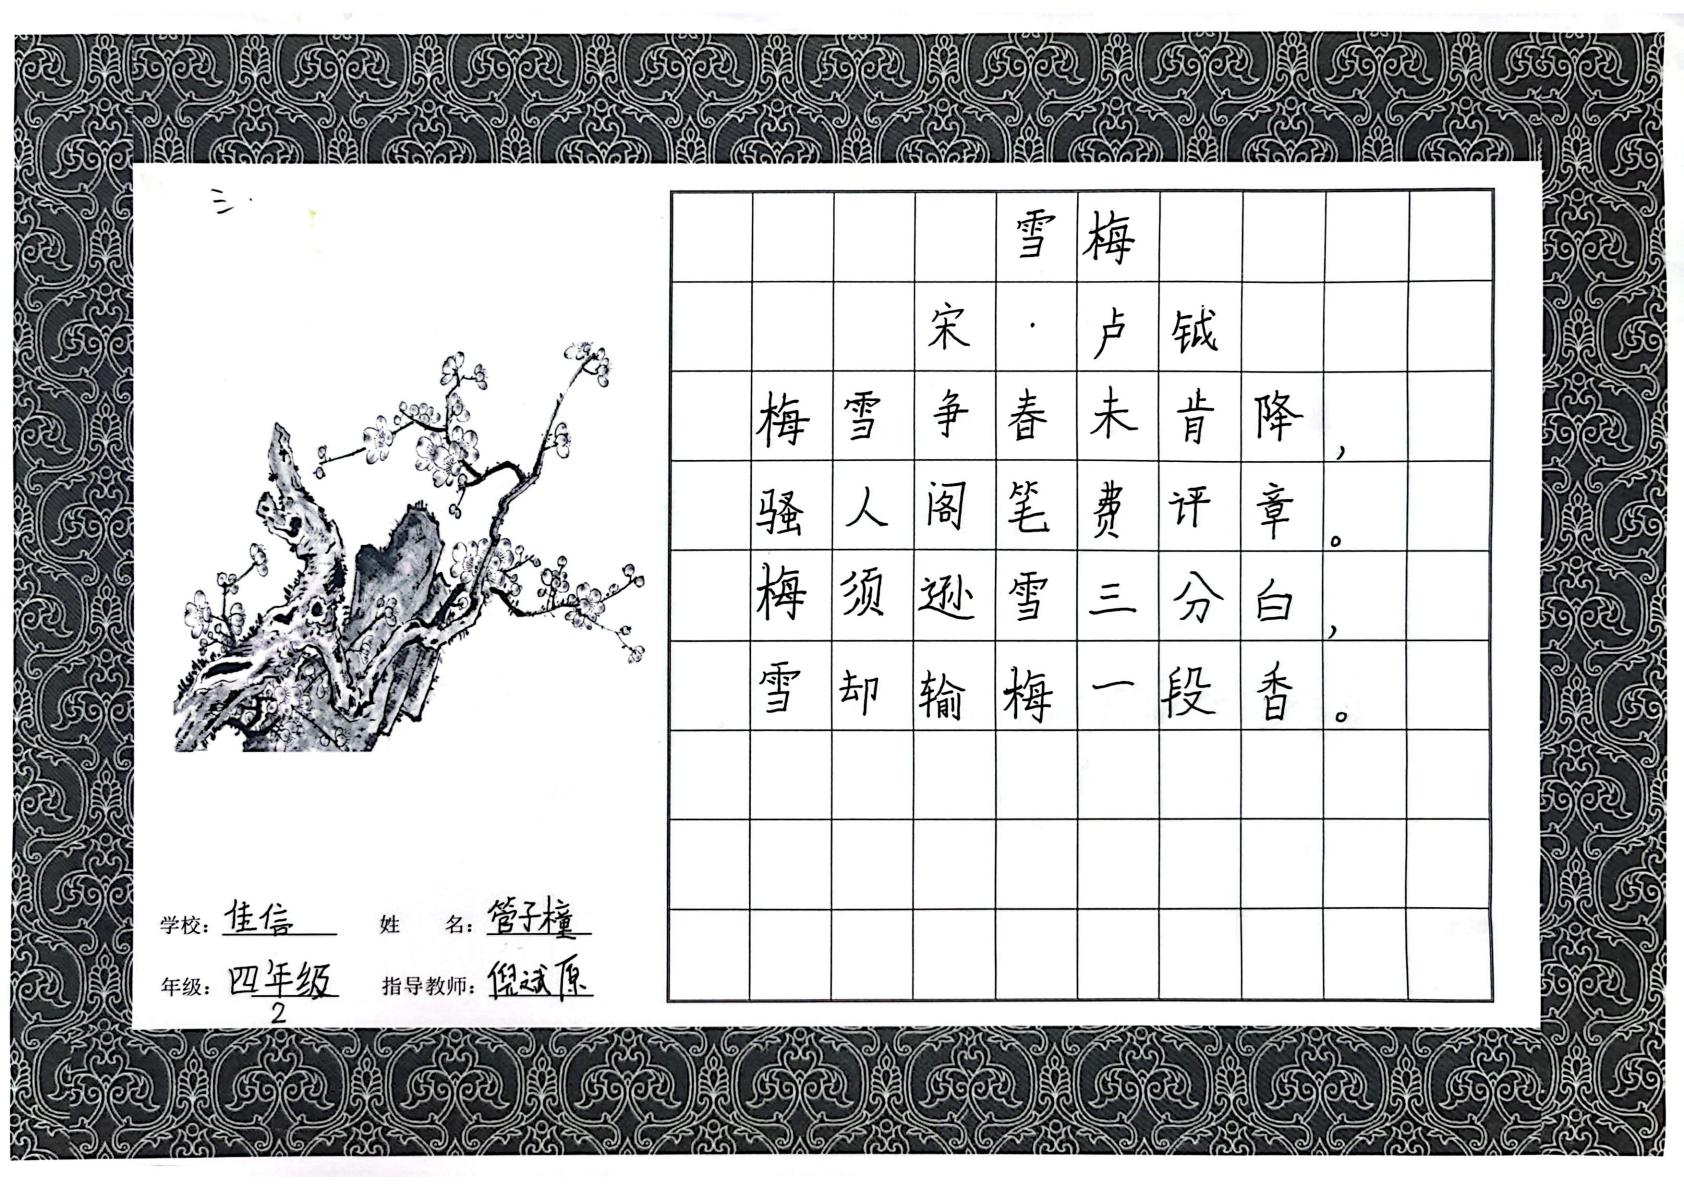 三.
雪梅
宋·卢钺
梅雪争春未肯降，
骚人阁笔费评章。
梅须逊雪三分白，
雪却输梅一段香。
学校：佳信 姓名：管子橦
年级：四年级 指导教师：倪斌原
2